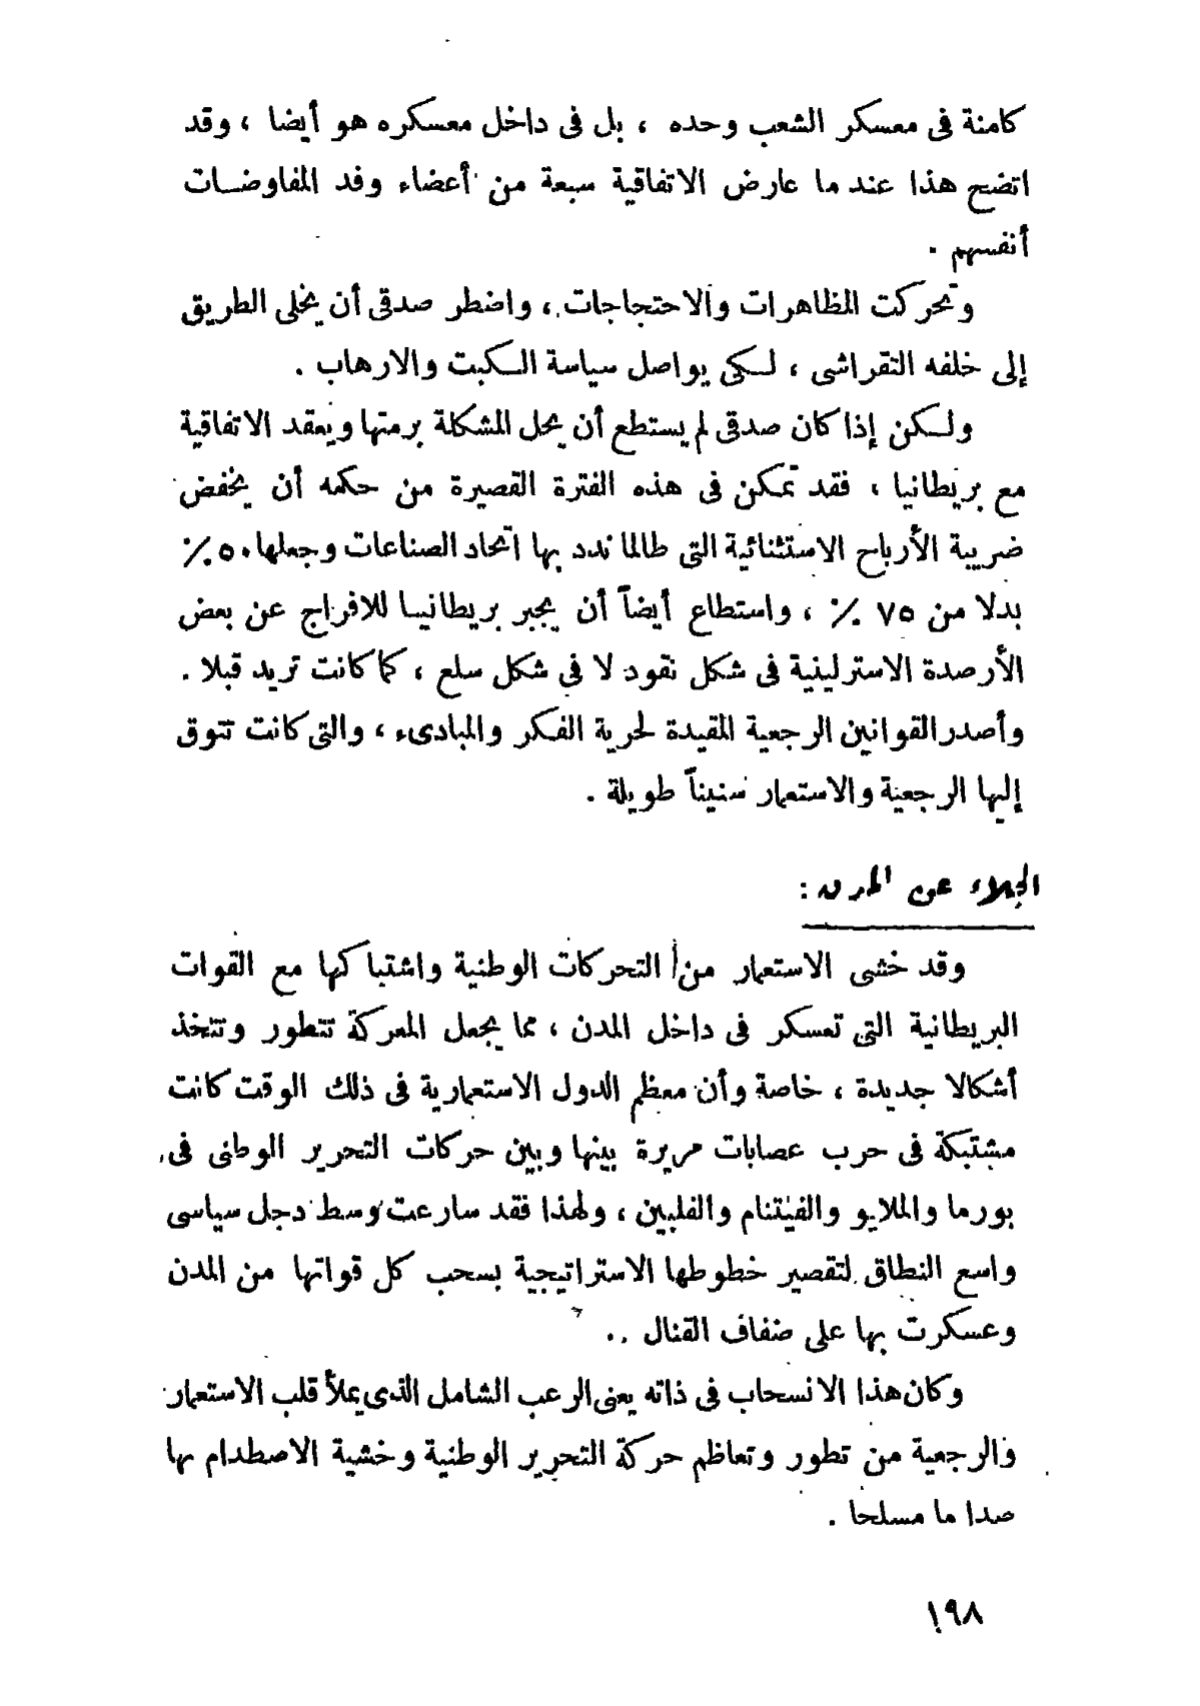 كامنة فى معسكر الشعب وحده ، بل فى داخل معسكره هو أيضا ، وقد
اتضح هذا عند ما عارض الاتفاقية سبعة من أعضاء وفد المفاوضات
أنفسهم .
وتحركت المظاهرات والاحتجاجات ، واضطر صدقى أن يخلى الطريق
إلى خلفه النقراشى ، لكى يواصل سياسة الكبت والارهاب .
ولكن إذا كان صدقى لم يستطع أن يحل المشكلة برمتها ويعقد الاتفاقية
مع بريطانيا ، فقد تمكن فى هذه الفترة القصيرة من حكمه أن يخفض
ضريبة الأرباح الاستثنائية التى طالما ندد بها اتحاد الصناعات وجعلها ٥٠ ٪
بدلا من ٧٥ ٪ ، واستطاع أيضاً أن يجبر بريطانيا للافراج عن بعض
الأرصدة الاسترلينية فى شكل نقود لا فى شكل سلع ، كما كانت تريد قبلا .
وأصدر القوانين الرجعية المقيدة لحرية الفكر والمبادىء ، والتى كانت تتوق
إليها الرجعية والاستعمار سنيناً طويلة .
الجلاء عن المدن :
وقد خشى الاستعمار من التحركات الوطنية واشتباكها مع القوات
البريطانية التى تعسكر فى داخل المدن ، مما يجعل المعركة تتطور وتتخذ
أشكالا جديدة ، خاصة وأن معظم الدول الاستعمارية فى ذلك الوقت كانت
مشتبكة فى حرب عصابات مريرة بينها وبين حركات التحرير الوطنى فى
بورما والملايو والفيتنام والفلبين ، ولهذا فقد سارعت وسط دجل سياسى
واسع النطاق لتقصير خطوطها الاستراتيجية بسحب كل قواتها من المدن
وعسكرت بها على ضفاف القنال .
وكان هذا الانسحاب فى ذاته يعنى الرعب الشامل الذى يملأ قلب الاستعمار
والرجعية من تطور وتعاظم حركة التحرير الوطنية وخشية الاصطدام بها
صداما مسلحا .
١٩٨